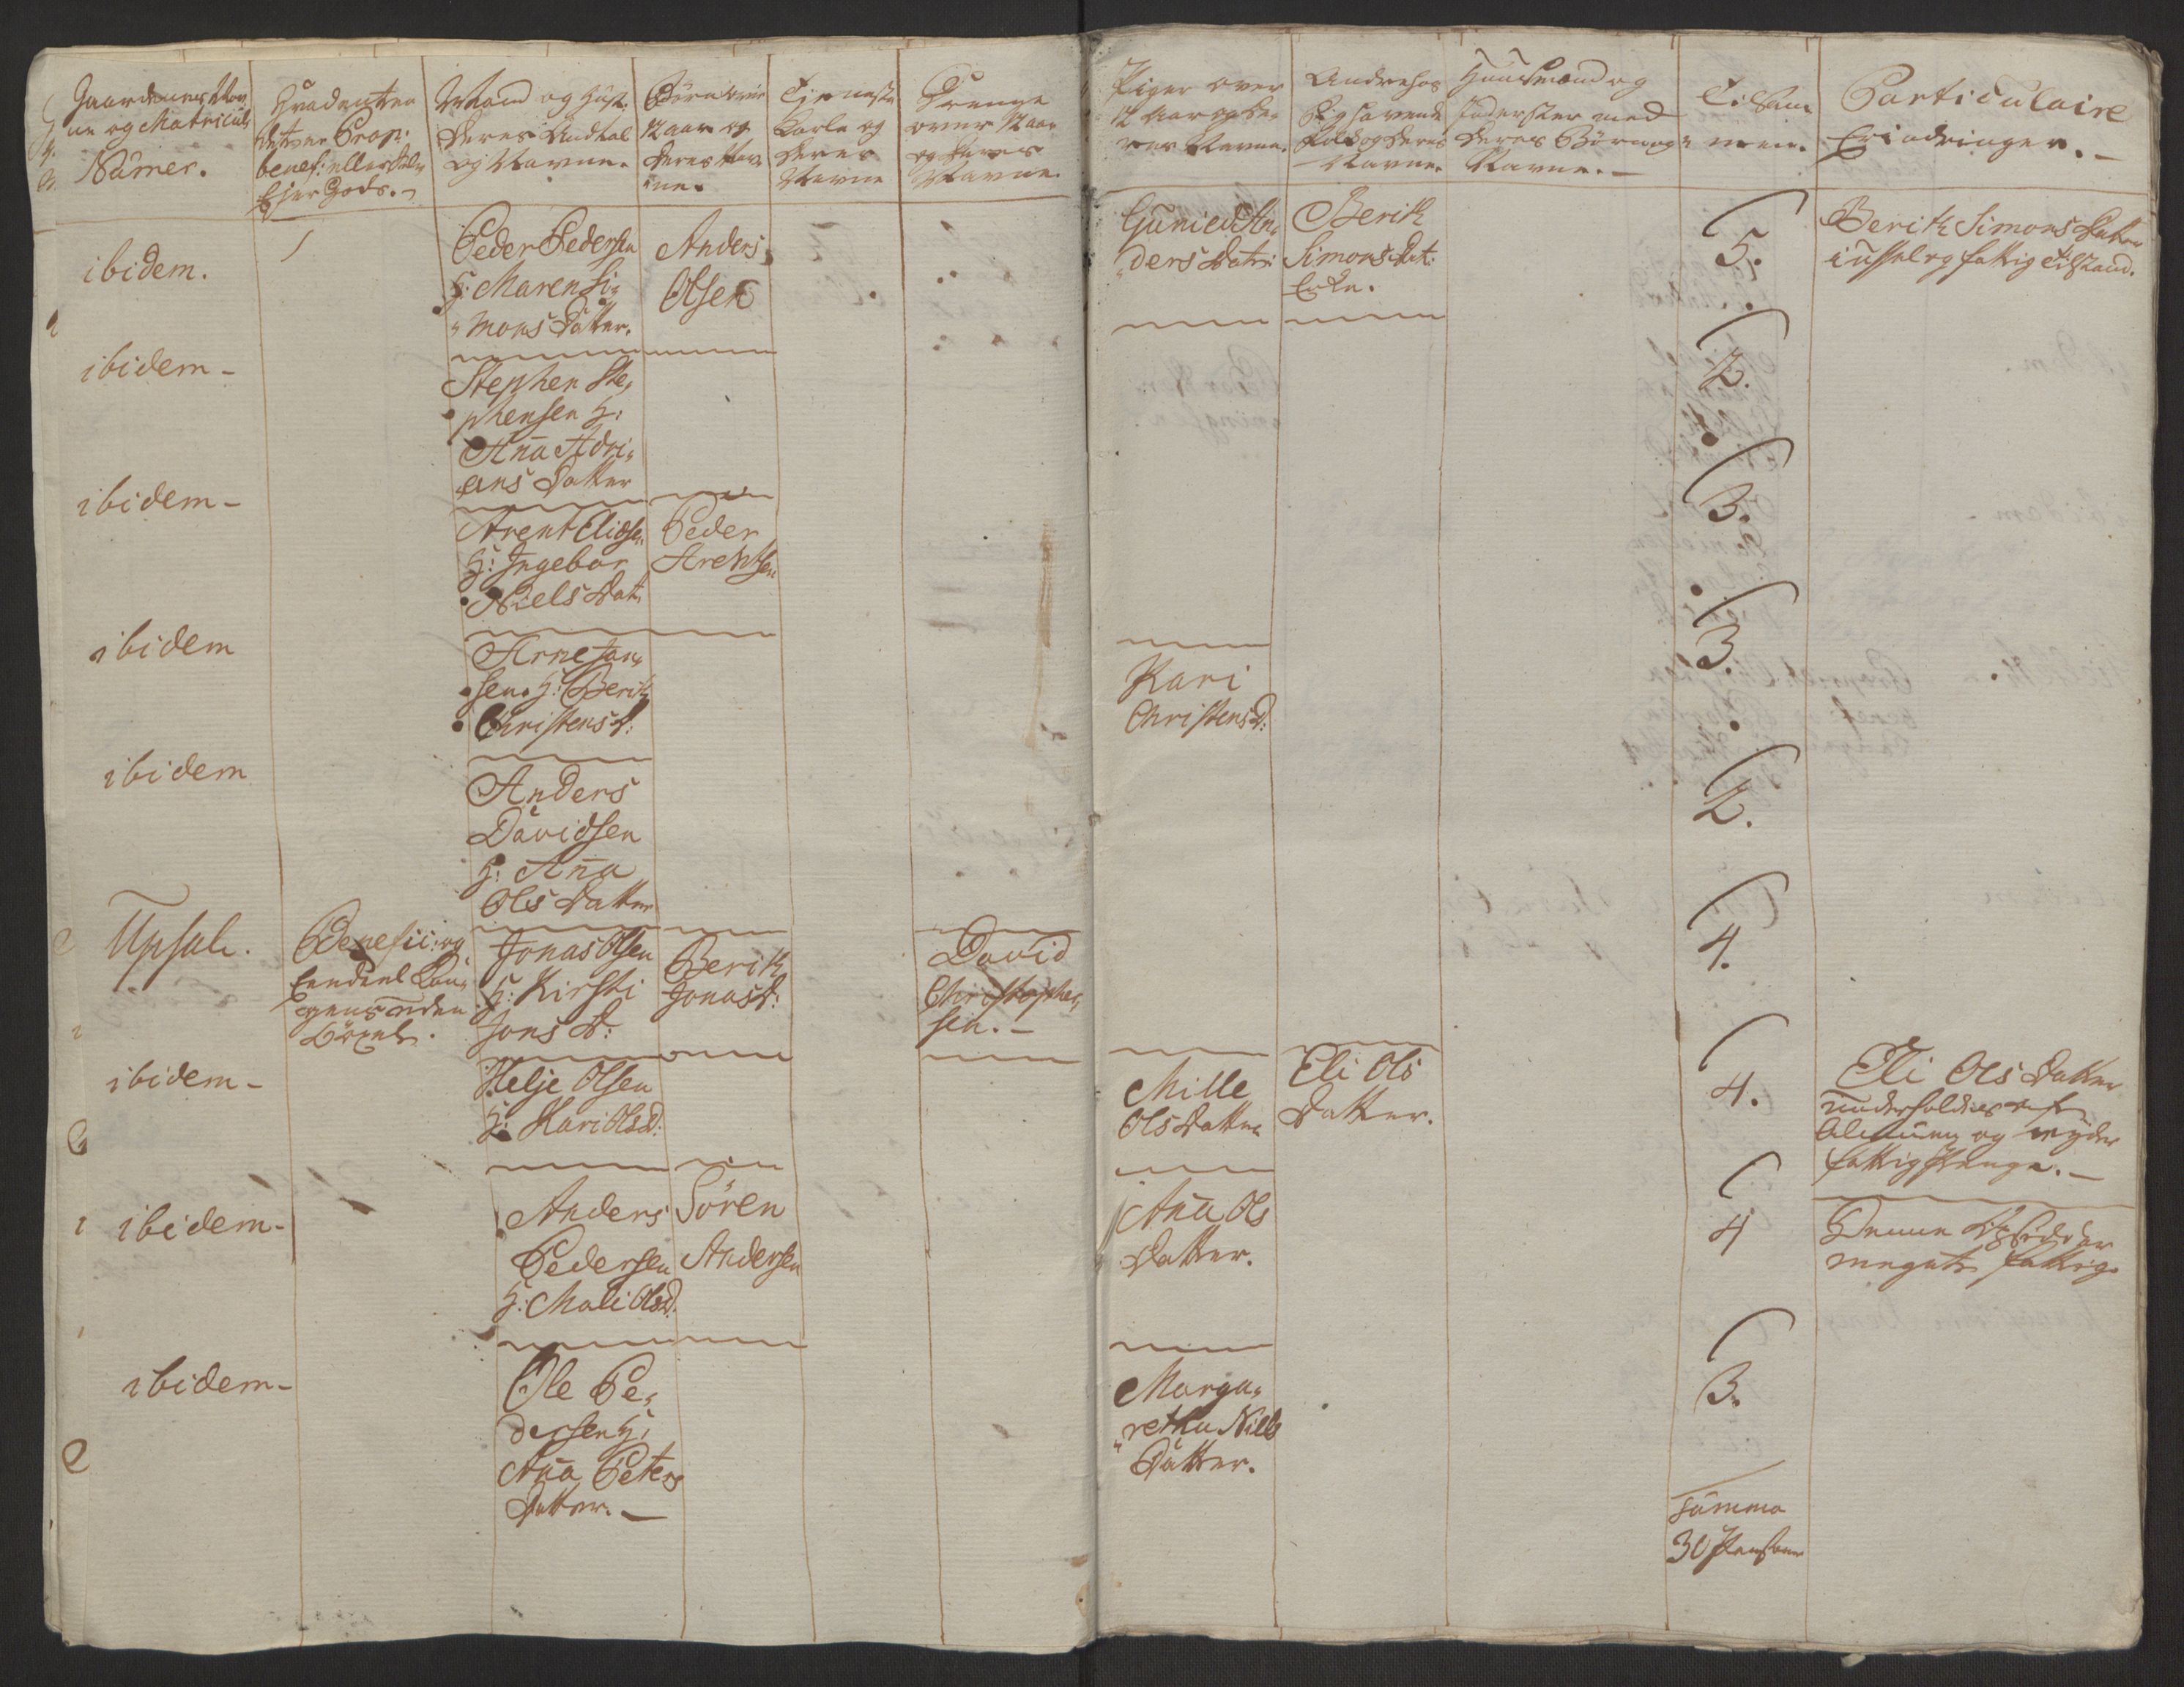 Gaardenes Nav,
ne og Matriculs
Numer.
Hvad enten
det er Prop:
benef: eller
Ejer Gods.
Mand og Hust:
Deres Andtal
og Navne.
Børn over
12 aar og
deres Nav,
ne.
Tjeneste
Karle og
Deres
Navne
Drenge
over 12 aar
og deres
Navne.
Piger over
12 Aar og de,
res Navne.
Andre hos
Sig havende
Folk og deres
Navne.
Huusmænd og
Inderster med
deres Børn og
Navne.
Tilsam
men.
Particulaire
Erindringer.
ibidem.
Peder Pedersen
H: Maren Si,
mons Datter.
Anders
Olsen
Guni​ed An,
ders Datr:
Berith
Simons Dat:
Enke.
5.
Berith Simons Datter
i ussel og fattig tilstand.
ibidem
Stephen Ste,
phensen H:
Anna Adri,
ans Datter
2.
ibidem
Arent Eliasen
H: Ingebor
Niels Dat:
Peder
Arentsen
3.
ibidem
Arne Jon,
sen. H: Berith
Christens D:
Kari
Christens D:
3.
ibidem
Anders
Davidsen
H: Anna
Ols Datter
2.
Upsal.
Benefici: og
Jonas Olsen
H: Kirsti
Jons D:
Berith
Jonas D:
David
Christopher,
sen.
4.
ibidem
Helje Olsen
H: Kari Ols D:
Mille
Ols Datter
Eli Ols
Datter.
4.
Eli Ols Datter
underholdes af
Almuen og nyder
fattig Penge.
ibidem
Anders
Pedersen
H: Mali Ols D.
Søren
Andersen
Anna Ols
Datter.
4
Denne Opsidder er
meget fattig.
ibidem
Ole Pe,
dersen H:
Anna Peters
Datter.
Marga,
retha Niels
Datter.
3.
Summa
30 Persone